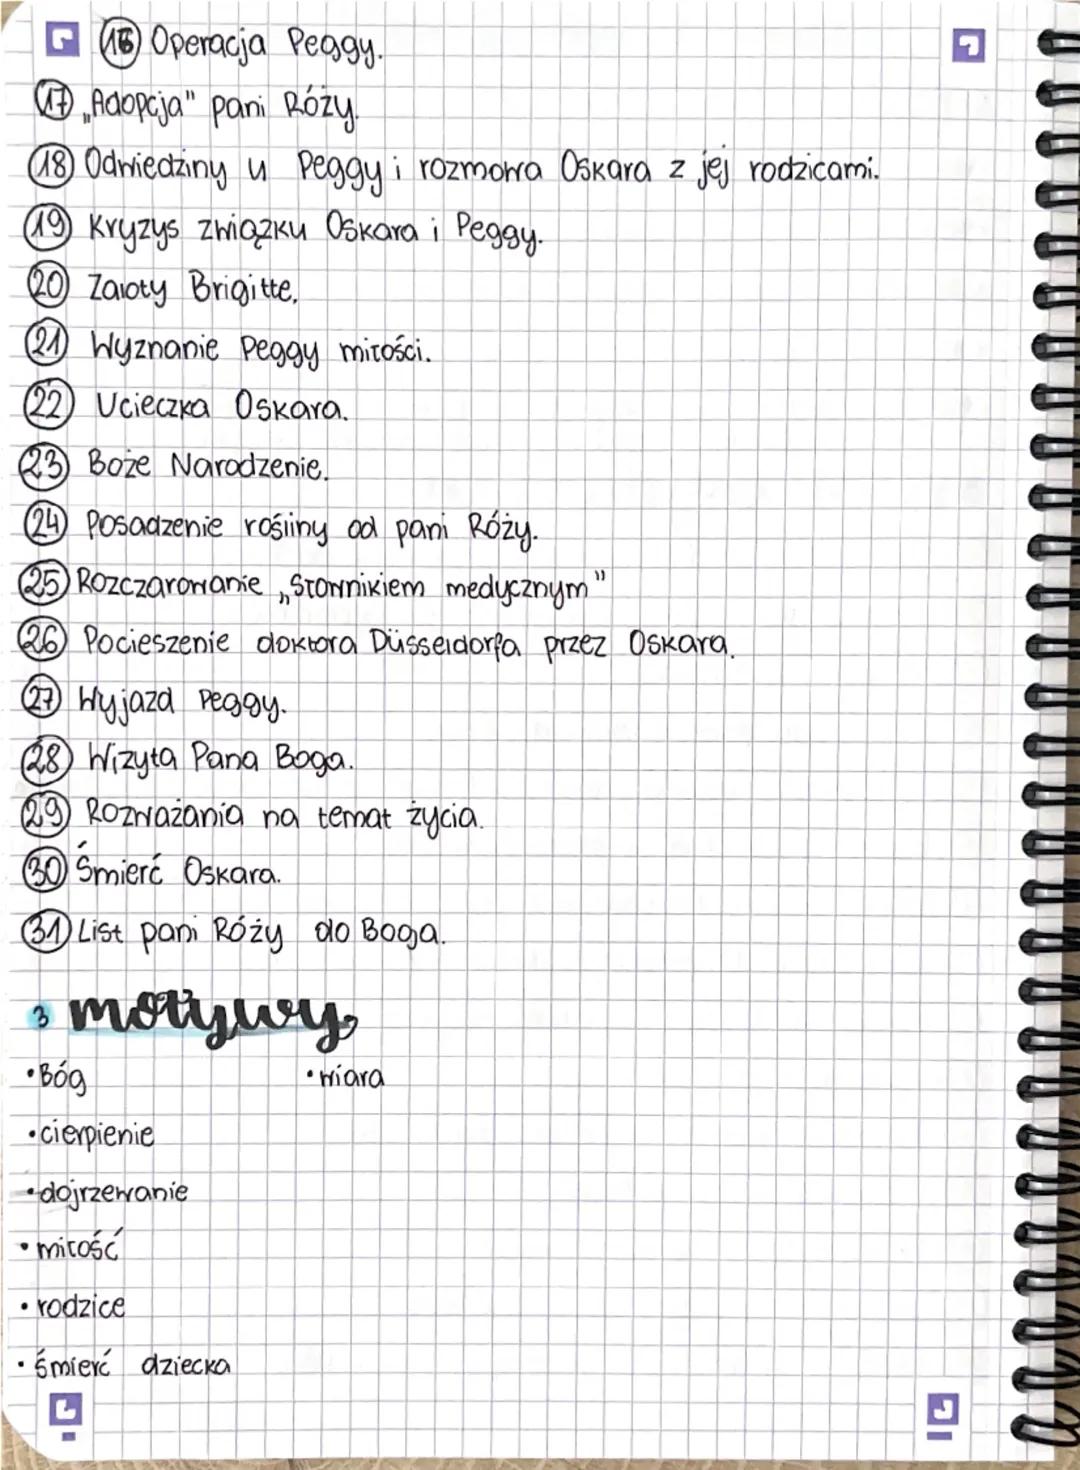 16 Operacja Peggy.
17 „Adopcja" pani Róży.
18 Odwiedziny u Peggy i rozmowa Oskara z jej rodzicami.
19 Kryzys związku Oskara i Peggy.
20 Zaloty Brigitte.
21 Wyznanie Peggy miłości.
22 Ucieczka Oskara.
23 Boże Narodzenie.
24 Posadzenie rośliny od pani Róży.
25 Rozczarowanie „Słownikiem medycznym"
26 Pocieszenie doktora Düsseldorfa przez Oskara.
27 Wyjazd Peggy.
28 Wizyta Pana Boga.
29 Rozważania na temat życia.
30 Śmierć Oskara.
31 List pani Róży do Boga.
3 motywy
•Bóg •wiara
•cierpienie
•dojrzewanie
•miłość
•rodzice
•śmierć dziecka